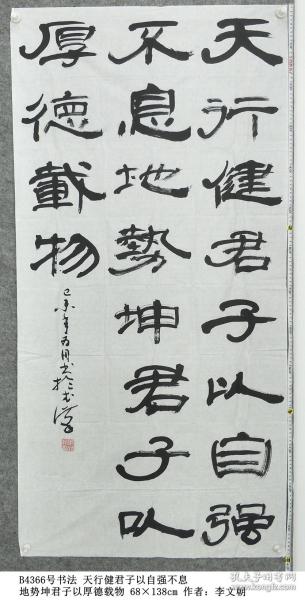 天行健君子以自强
不息地勢坤君子以
厚德載物
B4366号书法 天行健君子以自强不息
地势坤君子以厚德载物 68×138cm 作者：李文朝